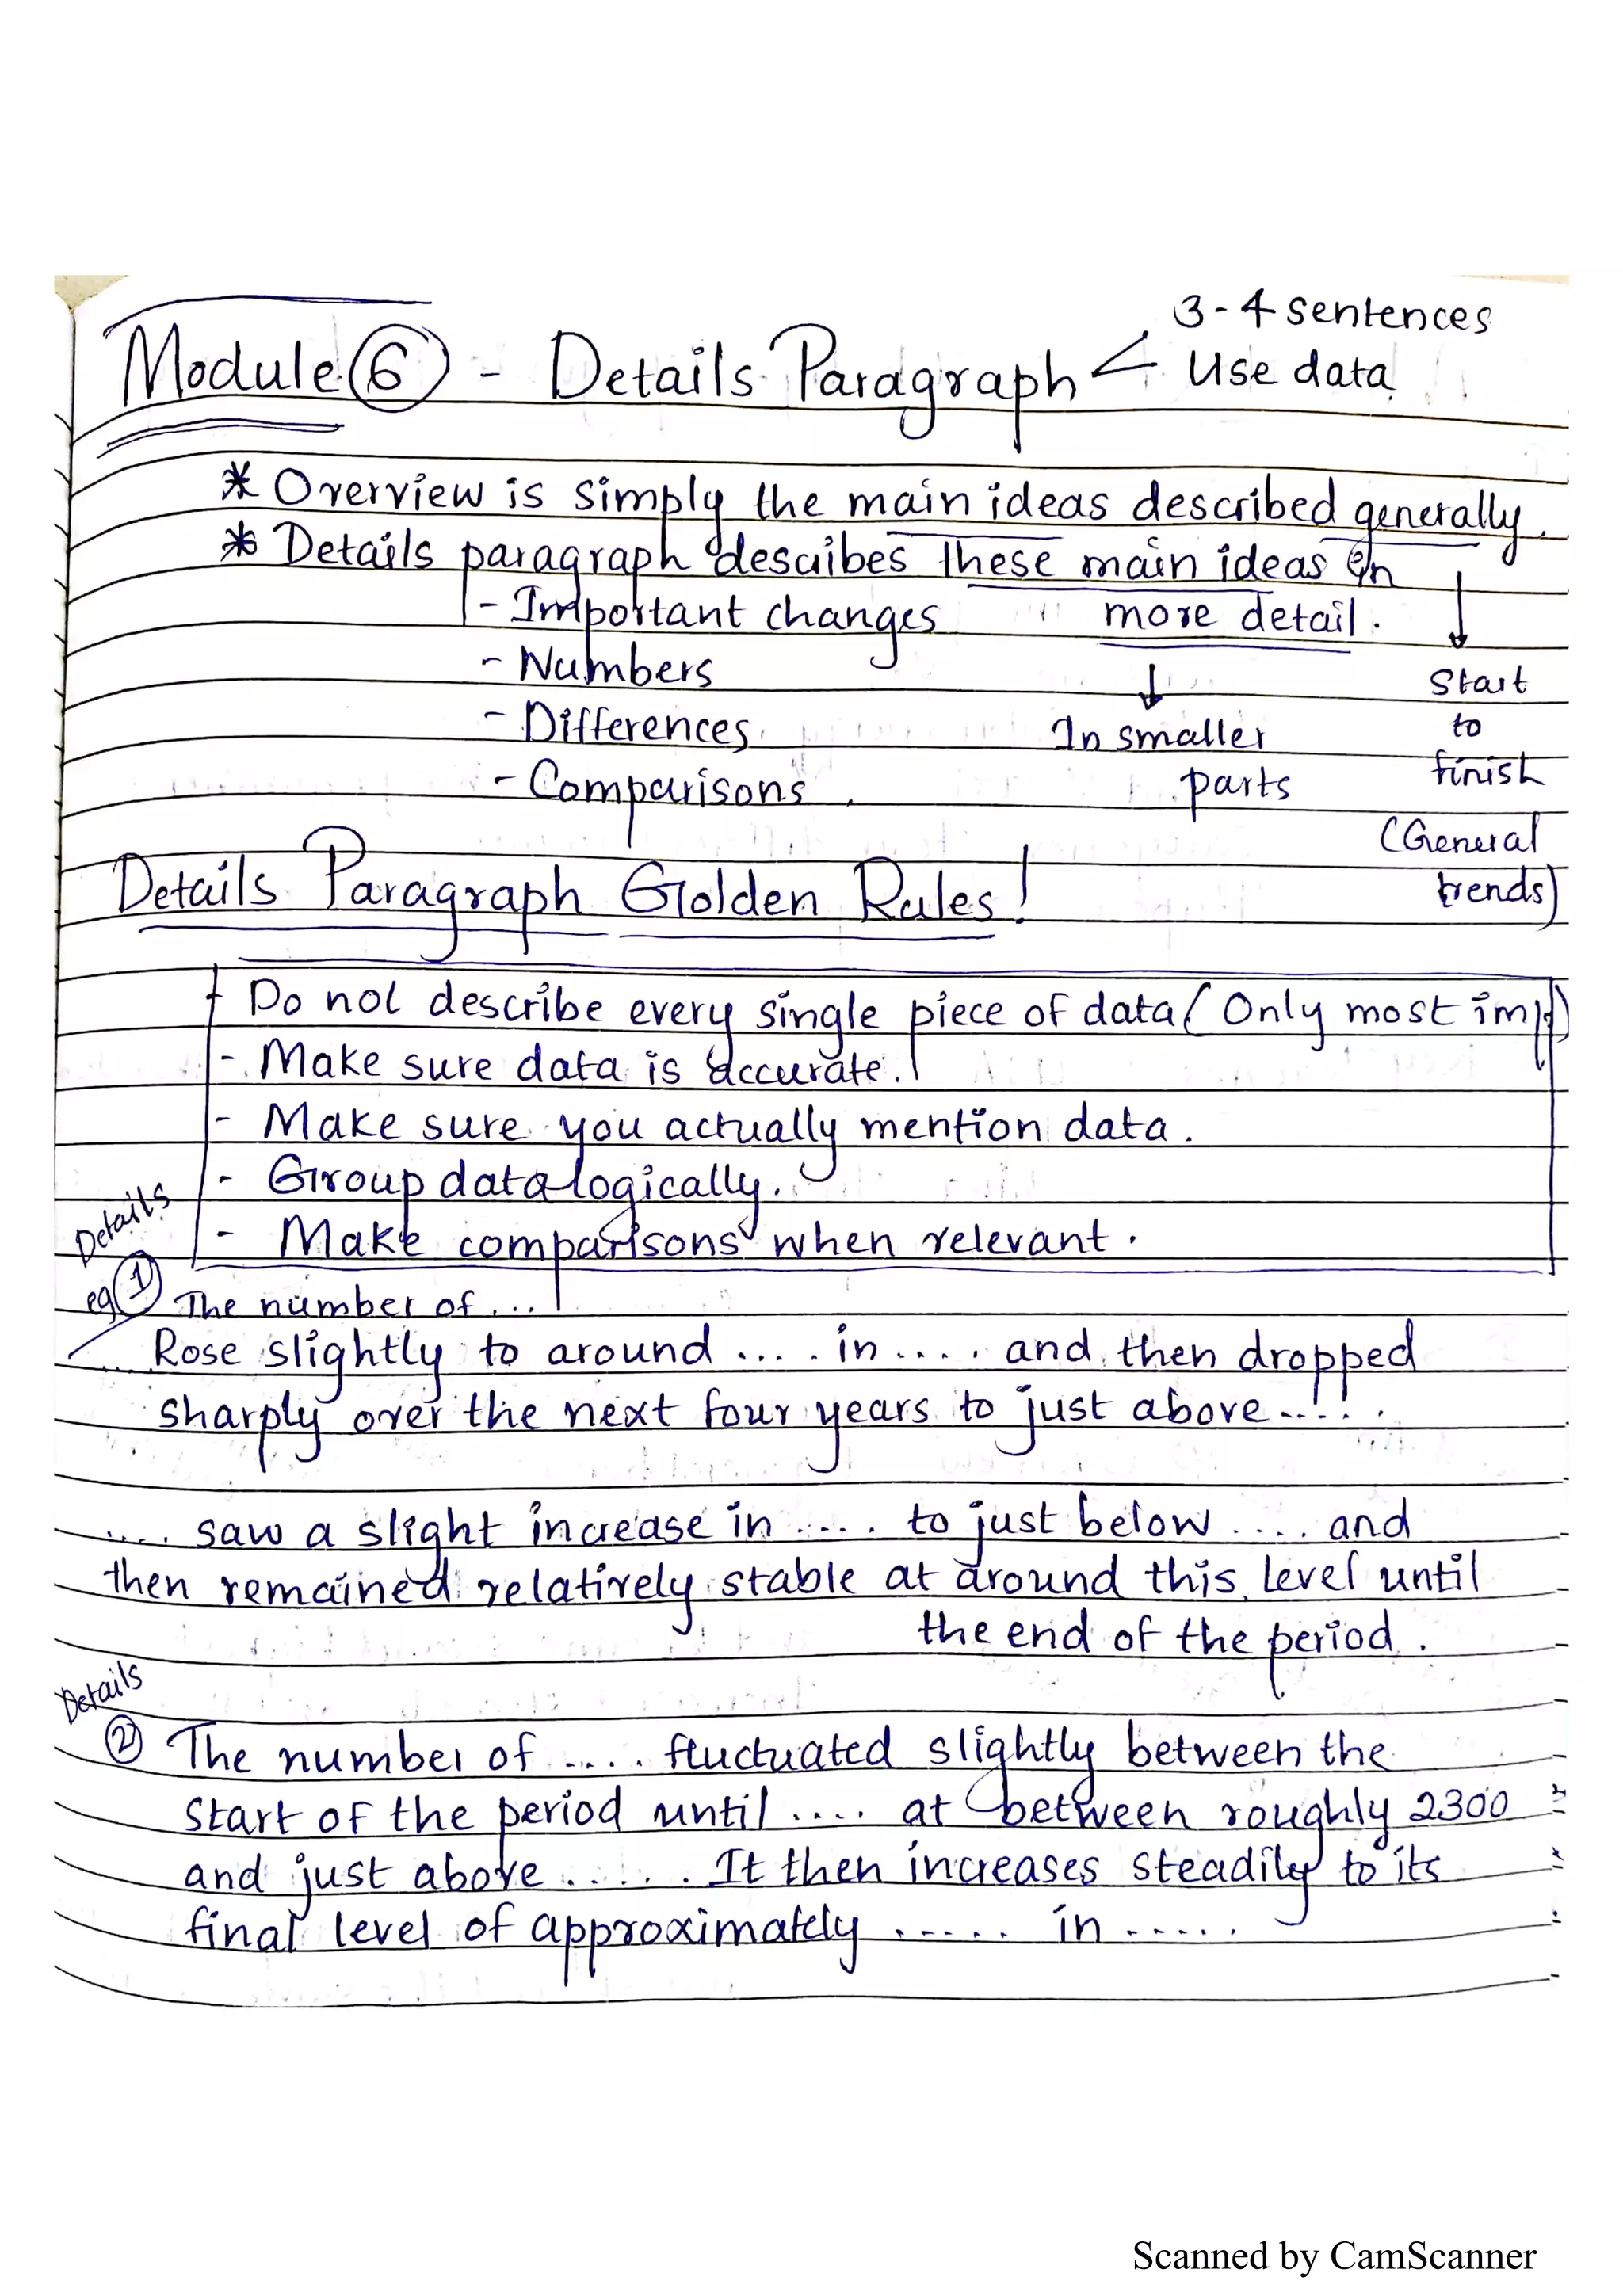 3-4 Sentences
Module 6 - Details Paragraph < Use data
* Overview is simply the main ideas described generally.
* Details paragraph describes these main ideas in
- Important changes more detail.
- Numbers Start
- Differences In smaller to
- Comparisons. parts finish
(General
Details Paragraph Golden Rules! trends)
- Do not describe every single piece of data (Only most imp)
- Make sure data is accurate.
- Make sure you actually mention data.
- Group data logically.
Details
- Make comparisons when relevant.
eg 1 The number of ...
Rose slightly to around .... in .... and then dropped
sharply over the next four years to just above .....
.... saw a slight increase in .... to just below .... and
then remained relatively stable at around this level until
the end of the period.
Details
2 The number of .... fluctuated slightly between the
start of the period until .... at between roughly 2300
and just above ..... It then increases steadily to its
final level of approximately ..... in .....
Scanned by CamScanner